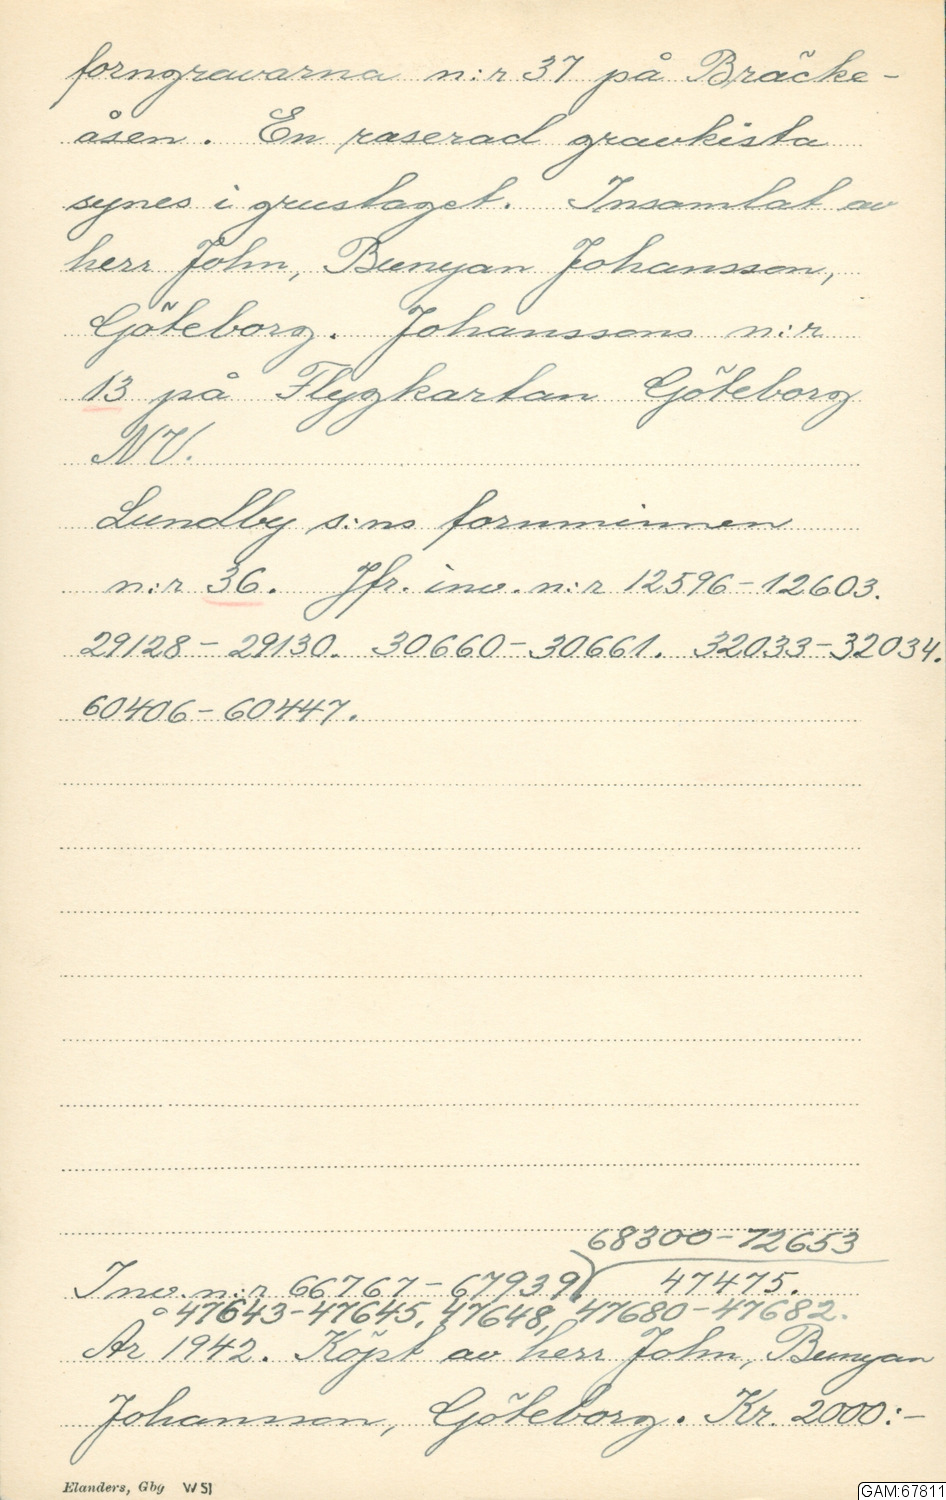 forngravarna n:r 37 på Bräcke-
åsen. En raserad gravkista
synes i grustaget. Insamlat av
herr John, Bunyan Johansson,
Göteborg. Johanssons n:r
13 på Flygkartan Göteborg
NV.
Lundby s:ns fornminnen
n:r 36. Jfr. inv. n:r 12596-12603.
29128-29130. 30660-30661. 32033-32034.
60406-60447.
68300-72653
Inv. n:r 66767-67939 47475.
47643-47645, 47648, 47680-47682.
År 1942. Köpt av herr John, Bunyan
Johansson, Göteborg. Kr. 2000:-
Elanders, Gbg W51
GAM:67811